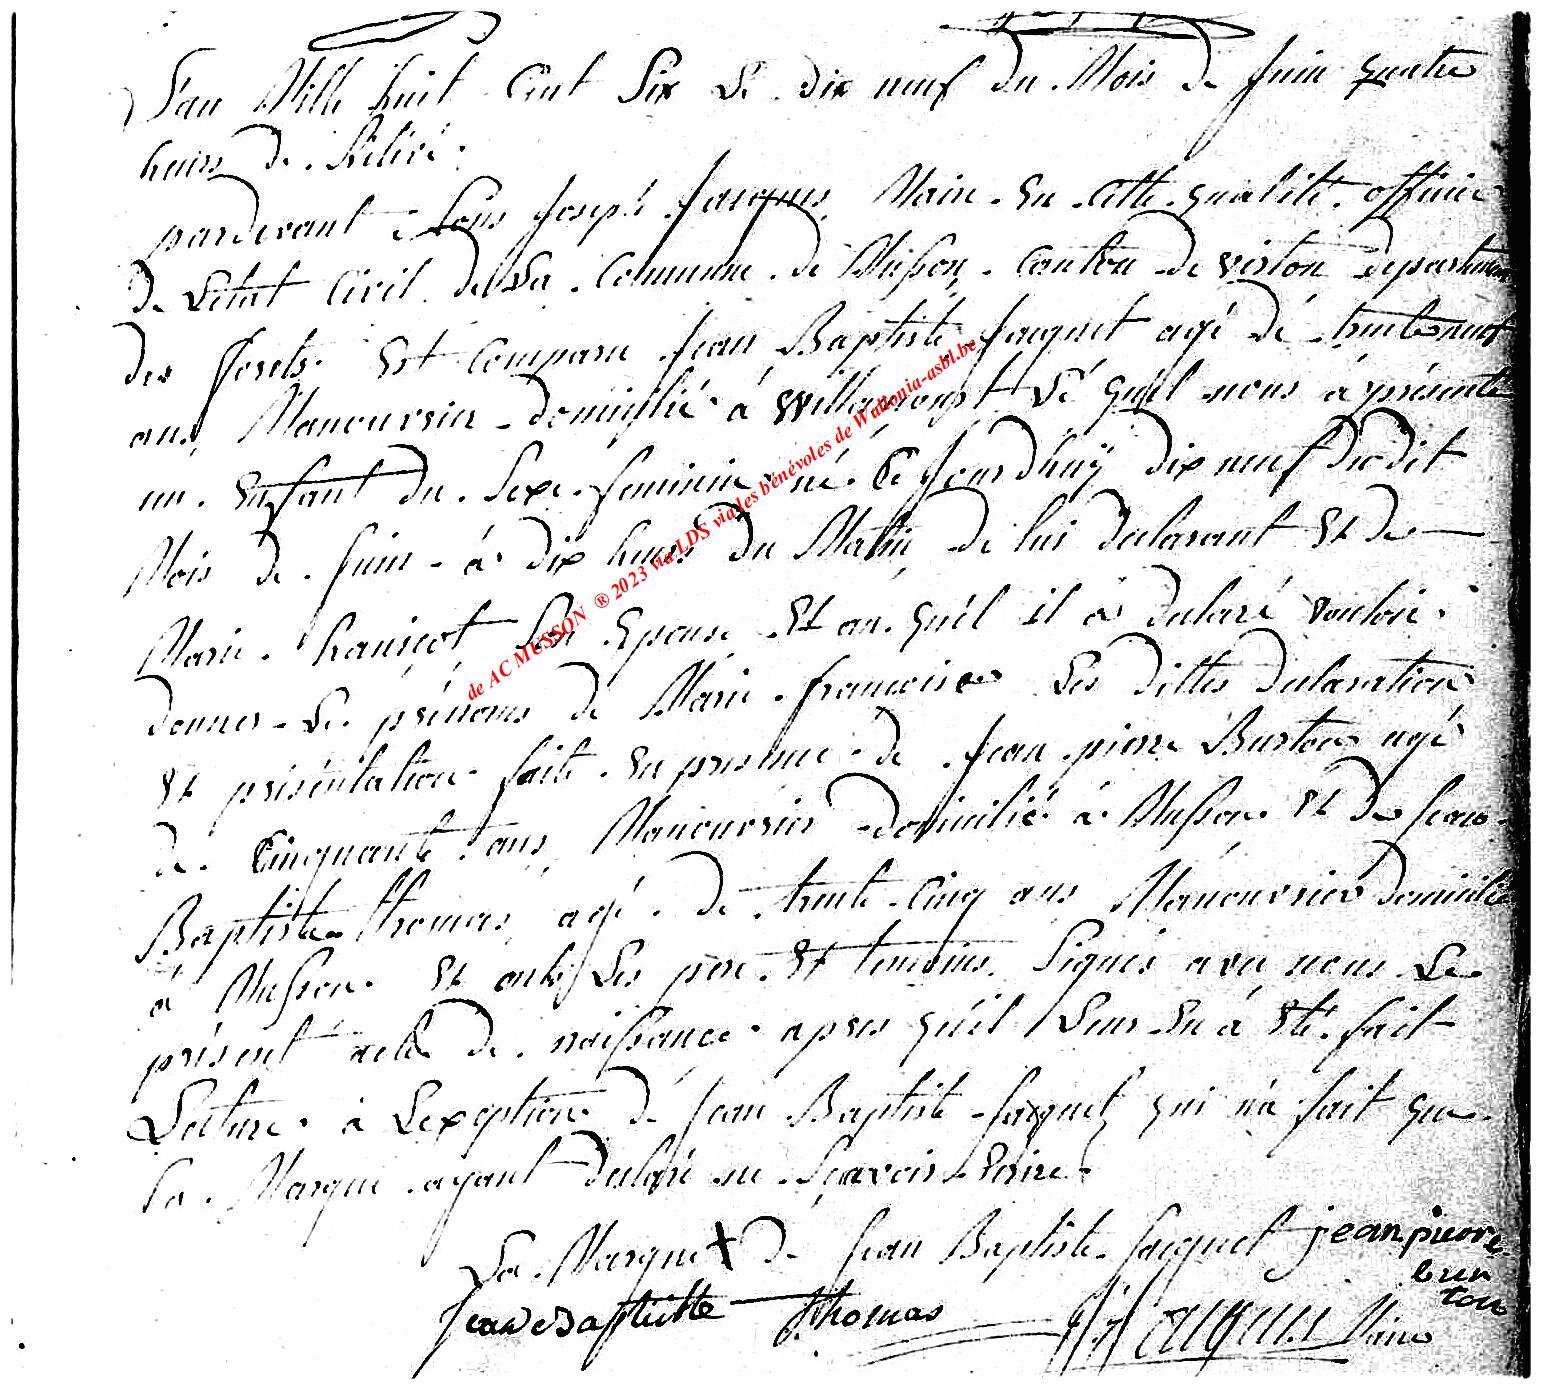 L'an Mille huit Cent Six Le dix neuf du Mois de Juin quatre
heures de Rélévé.
pardevant Nous Joseph Jacques Maire En cette qualité officier
de Létat Civil de La Commune de Musson, Canton de virton département
des forets. Est Comparu Jean Baptiste Jacquet agé dé trente neuf
ans, Manouvrier domicillié à Willancourt Lé quél nous à présenté
un Enfant du Sexe feminin né Ce Jourdhuÿ dix neuf du dit
Mois de Juin à dix heures du Matin, de lui declarant Et de
Marie hanicot Son Epouse Et au quél il à declaré vouloir
donner Le prénoms de Marie francoise Les dittes declaration
Et présentation faite En presence de Jean pierre Burton agé
de Cinquante ans, Manouvrier domicilié à Musson Et de Jean
Baptiste thomas, agé de trente Cinq ans Manouvrier domicilié
à Musson Et ont Les pere Et temoins Signés avec nous Le
présent acte de naissance apres quél Leur En à Eté fait
Lecture à Lexception dé Jean Baptiste Jacquet qui n'a fait que
Sa Marque ayant declaré ne Sçavoir Ecrire
La Marque X de Jean Baptiste Jacquet jean pierre
burton
Jean Baptiste thomas J J Jacques Maire
de AC MUSSON ® 2023 via LDS via les bénévoles de Wallonia-asbl.be